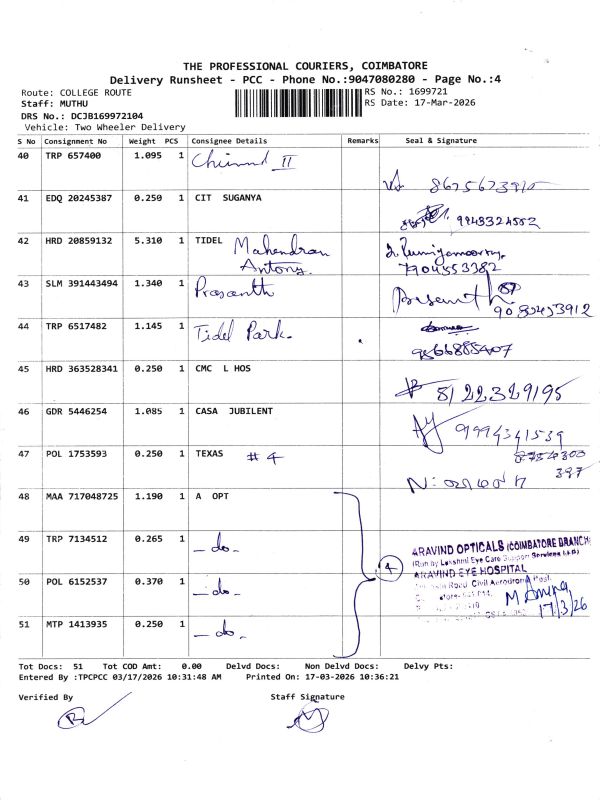 THE PROFESSIONAL COURIERS, COIMBATORE
Delivery Runsheet - PCC - Phone No.:9047080280 - Page No.:4
Route: COLLEGE ROUTE
RS No.: 1699721
Staff: MUTHU
RS Date: 17-Mar-2026
DRS No.: DCJB169972104
Vehicle: Two Wheeler Delivery
S No Consignment No Weight PCS Consignee Details Remarks Seal & Signature
40 TRP 657400 1.095 1
41 EDQ 20245387 0.250 1 CIT SUGANYA
42 HRD 20859132 5.310 1 TIDEL Mahendran
Antony.
7904553382
43 SLM 391443494 1.340 1 Prasanth
44 TRP 6517482 1.145 1 Tidel Park.
9566885407
45 HRD 363528341 0.250 1 CMC L HOS
8122329195
46 GDR 5446254 1.085 1 CASA JUBILENT
9994341539
47 POL 1753593 0.250 1 TEXAS #4
48 MAA 717048725 1.190 1 A OPT
49 TRP 7134512 0.265 1 - do -
4
ARAVIND OPTICALS (COIMBATORE BRANCH)
(Run by Lakshmi Eye Care Support Services
ARAVIND EYE HOSPITAL
50 POL 6152537 0.370 1 - do -
Road Civil Aerodrome Post,
17/3/26
51 MTP 1413935 0.250 1 - do -
Tot Docs: 51 Tot COD Amt: 0.00 Delvd Docs: Non Delvd Docs: Delvy Pts:
Entered By :TPCPCC 03/17/2026 10:31:48 AM Printed On: 17-03-2026 10:36:21
Verified By Staff Signature